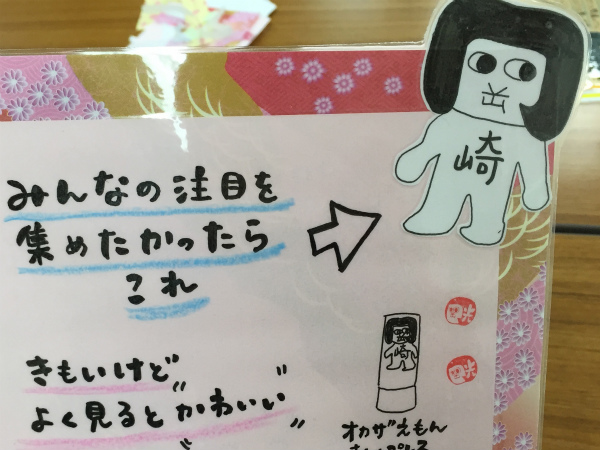 みんなの注目を
集めたかったら
これ
崎
きもいけど
よく見ると"かわいい"
崎
オカザえもん